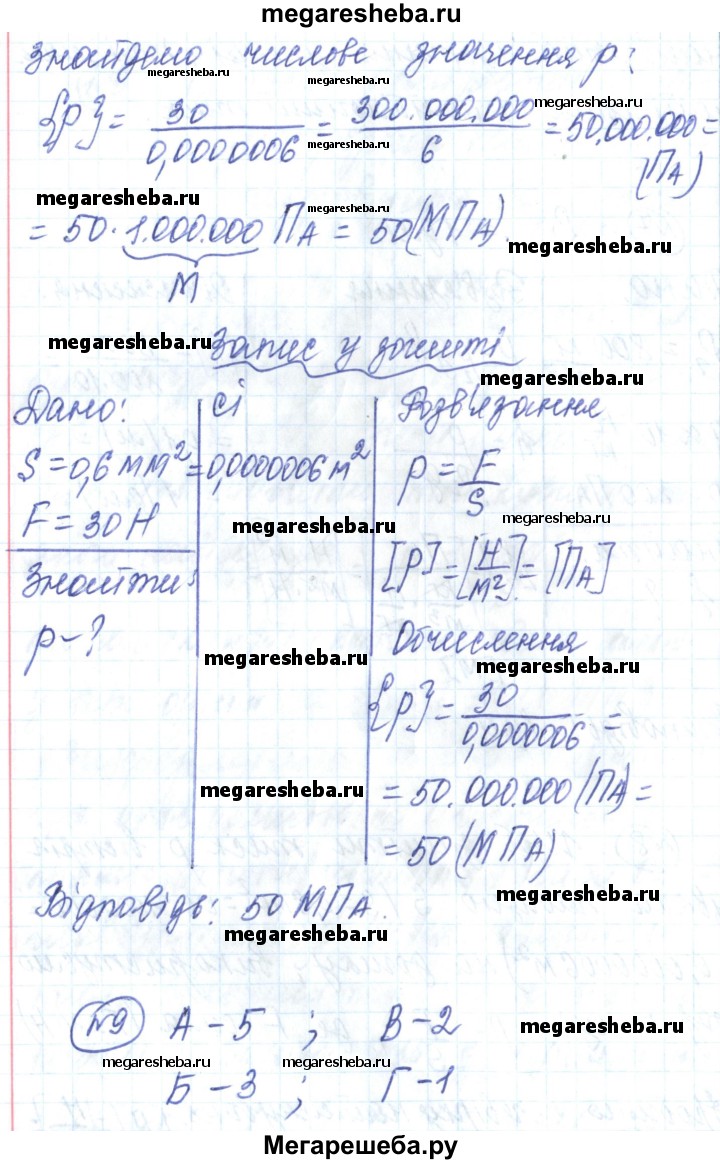 megaresheba.ru
Знайдемо числове значення р:
megaresheba.ru
megaresheba.ru
{р} = 30/0,0000006 = 300.000.000/6 = 50.000.000 =
megaresheba.ru
megaresheba.ru
(Па)
megaresheba.ru
megaresheba.ru
= 50 · 1.000.000 Па = 50 (МПа)
megaresheba.ru
М
megaresheba.ru
megaresheba.ru
Запис у зошиті
megaresheba.ru
Дано: | СІ | Розв'язання
S = 0,6 мм² = 0,0000006 м² | р = F/S
megaresheba.ru
megaresheba.ru
F = 30 Н
Знайти:
[р] = [Н/м²] = [Па]
р - ?
Обчислення
megaresheba.ru
megaresheba.ru
{р} = 30/0,0000006 =
megaresheba.ru
= 50.000.000 (Па) =
= 50 (МПа)
megaresheba.ru
Відповідь: 50 МПа.
megaresheba.ru
№9 А – 5 ; В – 2
megaresheba.ru
megaresheba.ru
megaresheba.ru
Б – 3 ; Г – 1
Мегарешеба.ру